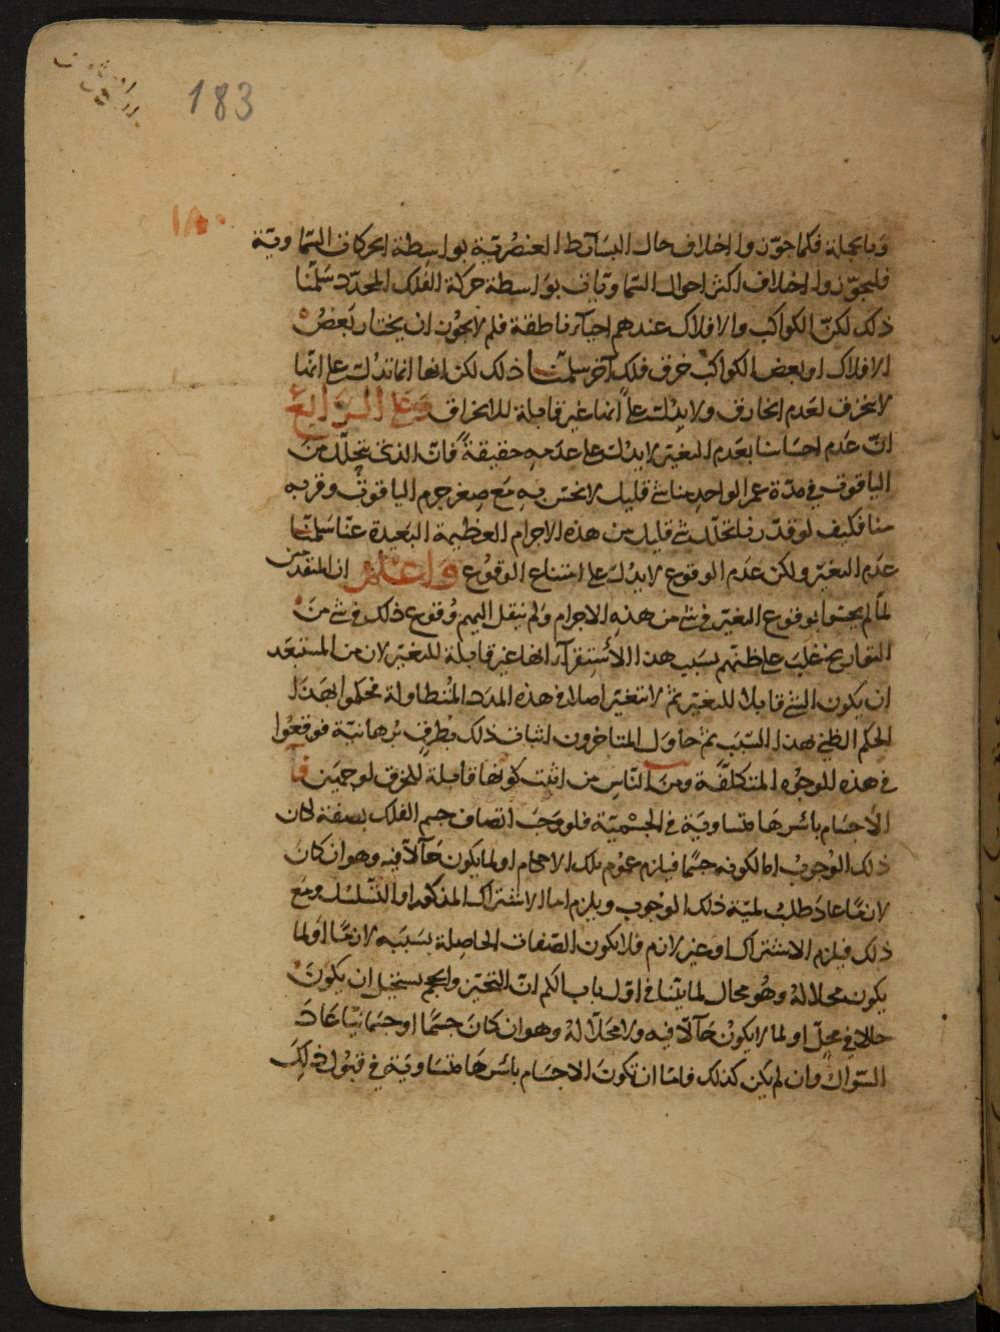 183
١٨٠
وبالجملة فكما جوّزوا اختلاف حال البسائط العنصريّة بواسطة الحركات السّماويّة
فليجوّزوا اختلاف اكثر احوال السّماويّات بواسطة حركة الفلك المحدّد سلّمنا
ذلك لكنّ الكواكب والافلاك عندهم احياء ناطقة فلم لا يجوز ان يختار بعض
الافلاك او بعض الكواكب خرق فلك آخر سلّمنا ذلك لكن انها انما تدلّ على انّها
لا تنخرق لعدم الخارق ولا يدلّ على انها غير قابلة للانخراق وعلى الرابع
انّ عدم احساسنا بعدم التغيّر لا يدلّ على عدمه حقيقةً فانّ الذى يتحلّل من
الياقوت في مدّة عمر الواحد منا شئ قليل لا نحسّ به مع صغر جرم الياقوت وقربه
منا فكيف لو قدّرنا تحلّل شئ قليل من هذه الاجرام العظيمة البعيدة عنّا سلّمنا
عدم التغيّر ولكن عدم الوقوع لا يدلّ على امتناع الوقوع واعلم ان المتقدّمين
لمّا لم يحسّوا بوقوع التغيّر في شئ من هذه الاجرام ولم ينقل اليهم وقوع ذلك في شئ من
التواريخ غلب على ظنّهم بسبب هذا الاستقرآء انها غير قابلة للتغيّر لان من المستبعد
ان يكون الشئ قابلا للتغيّر ثمّ لا يتغيّر اصلا في هذه المدد المتطاولة فحكموا بهذا
الحكم الظنى بهذا السّبب ثمّ حاول المتاخرون اثبات ذلك بطرق برهانيّة فوقعوا
في هذه الوجوه المتكلّفة ومن النّاس من اثبت كونها قابلة للخرق لوجهين آ
الاجسام باسرها متساوية في الجسميّة فلو وجب اتصاف جسم الفلك بصفة لكان
ذلك الوجوب اما لكونه جسمًا فيلزم عموم تلك الاحكام او لما يكون حآلّا فيه وهو ان كان
لازمًا عاد طلب لميّة ذلك الوجوب ويلزم اما الاشتراك المذكور او التّسلسل ومع
ذلك فيلزم الاشتراك او غير لازم فلا يكون الصّفات الحاصلة بسببه لازمًا او لما
يكون محلا له وهو محال لما بيّنا في اوّل باب الكم انّ التحيّز والحجم يستحيل ان يكون
حالا في محلّ او لما لا يكون حآلّا فيه ولا محلّا له وهو ان كان جسمًا او جسمانيّا عاد
السّؤال وان لم يكن كذلك فامّا ان تكون الاجسام باسرها متساوية في قبول ذلك